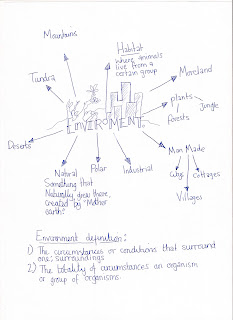 Mountains
Habitat
where animals
live from a
certain group
Moreland
Tundra
plants
Jungle
forests
EnVIROMENT
Deserts
Man Made
Natural
Something that
Naturally
there,
created by "Mother
earth"
Polar
Industrial
cottages
Villages
Environment definition:
1) The circumstances or conditions that surround
one; surroundings
2) The totality of circumstances an organism
or group of organisms.